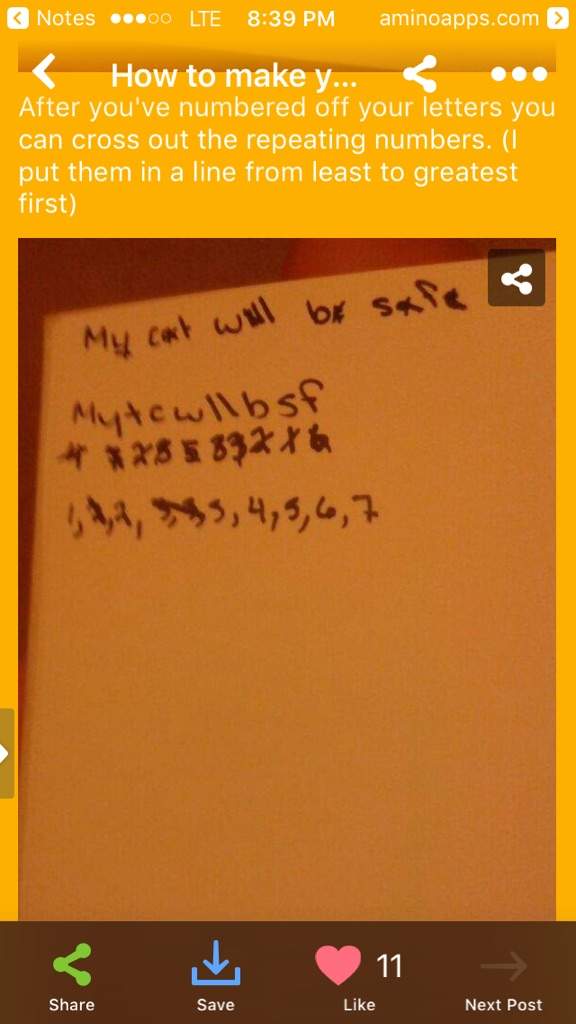 Notes LTE 8:39 PM aminoapps.com
How to make y...
After you've numbered off your letters you
can cross out the repeating numbers. (I
put them in a line from least to greatest
first)
My cat will be safe
Mytcwllbsf
4
1, 2, 2, 3, 4, 5, 6, 7
11
Share Save Like Next Post